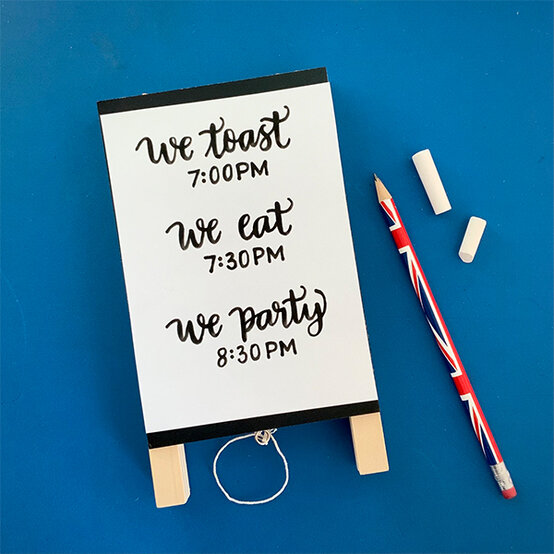 We toast
7:00PM
We eat
7:30PM
We party
8:30PM